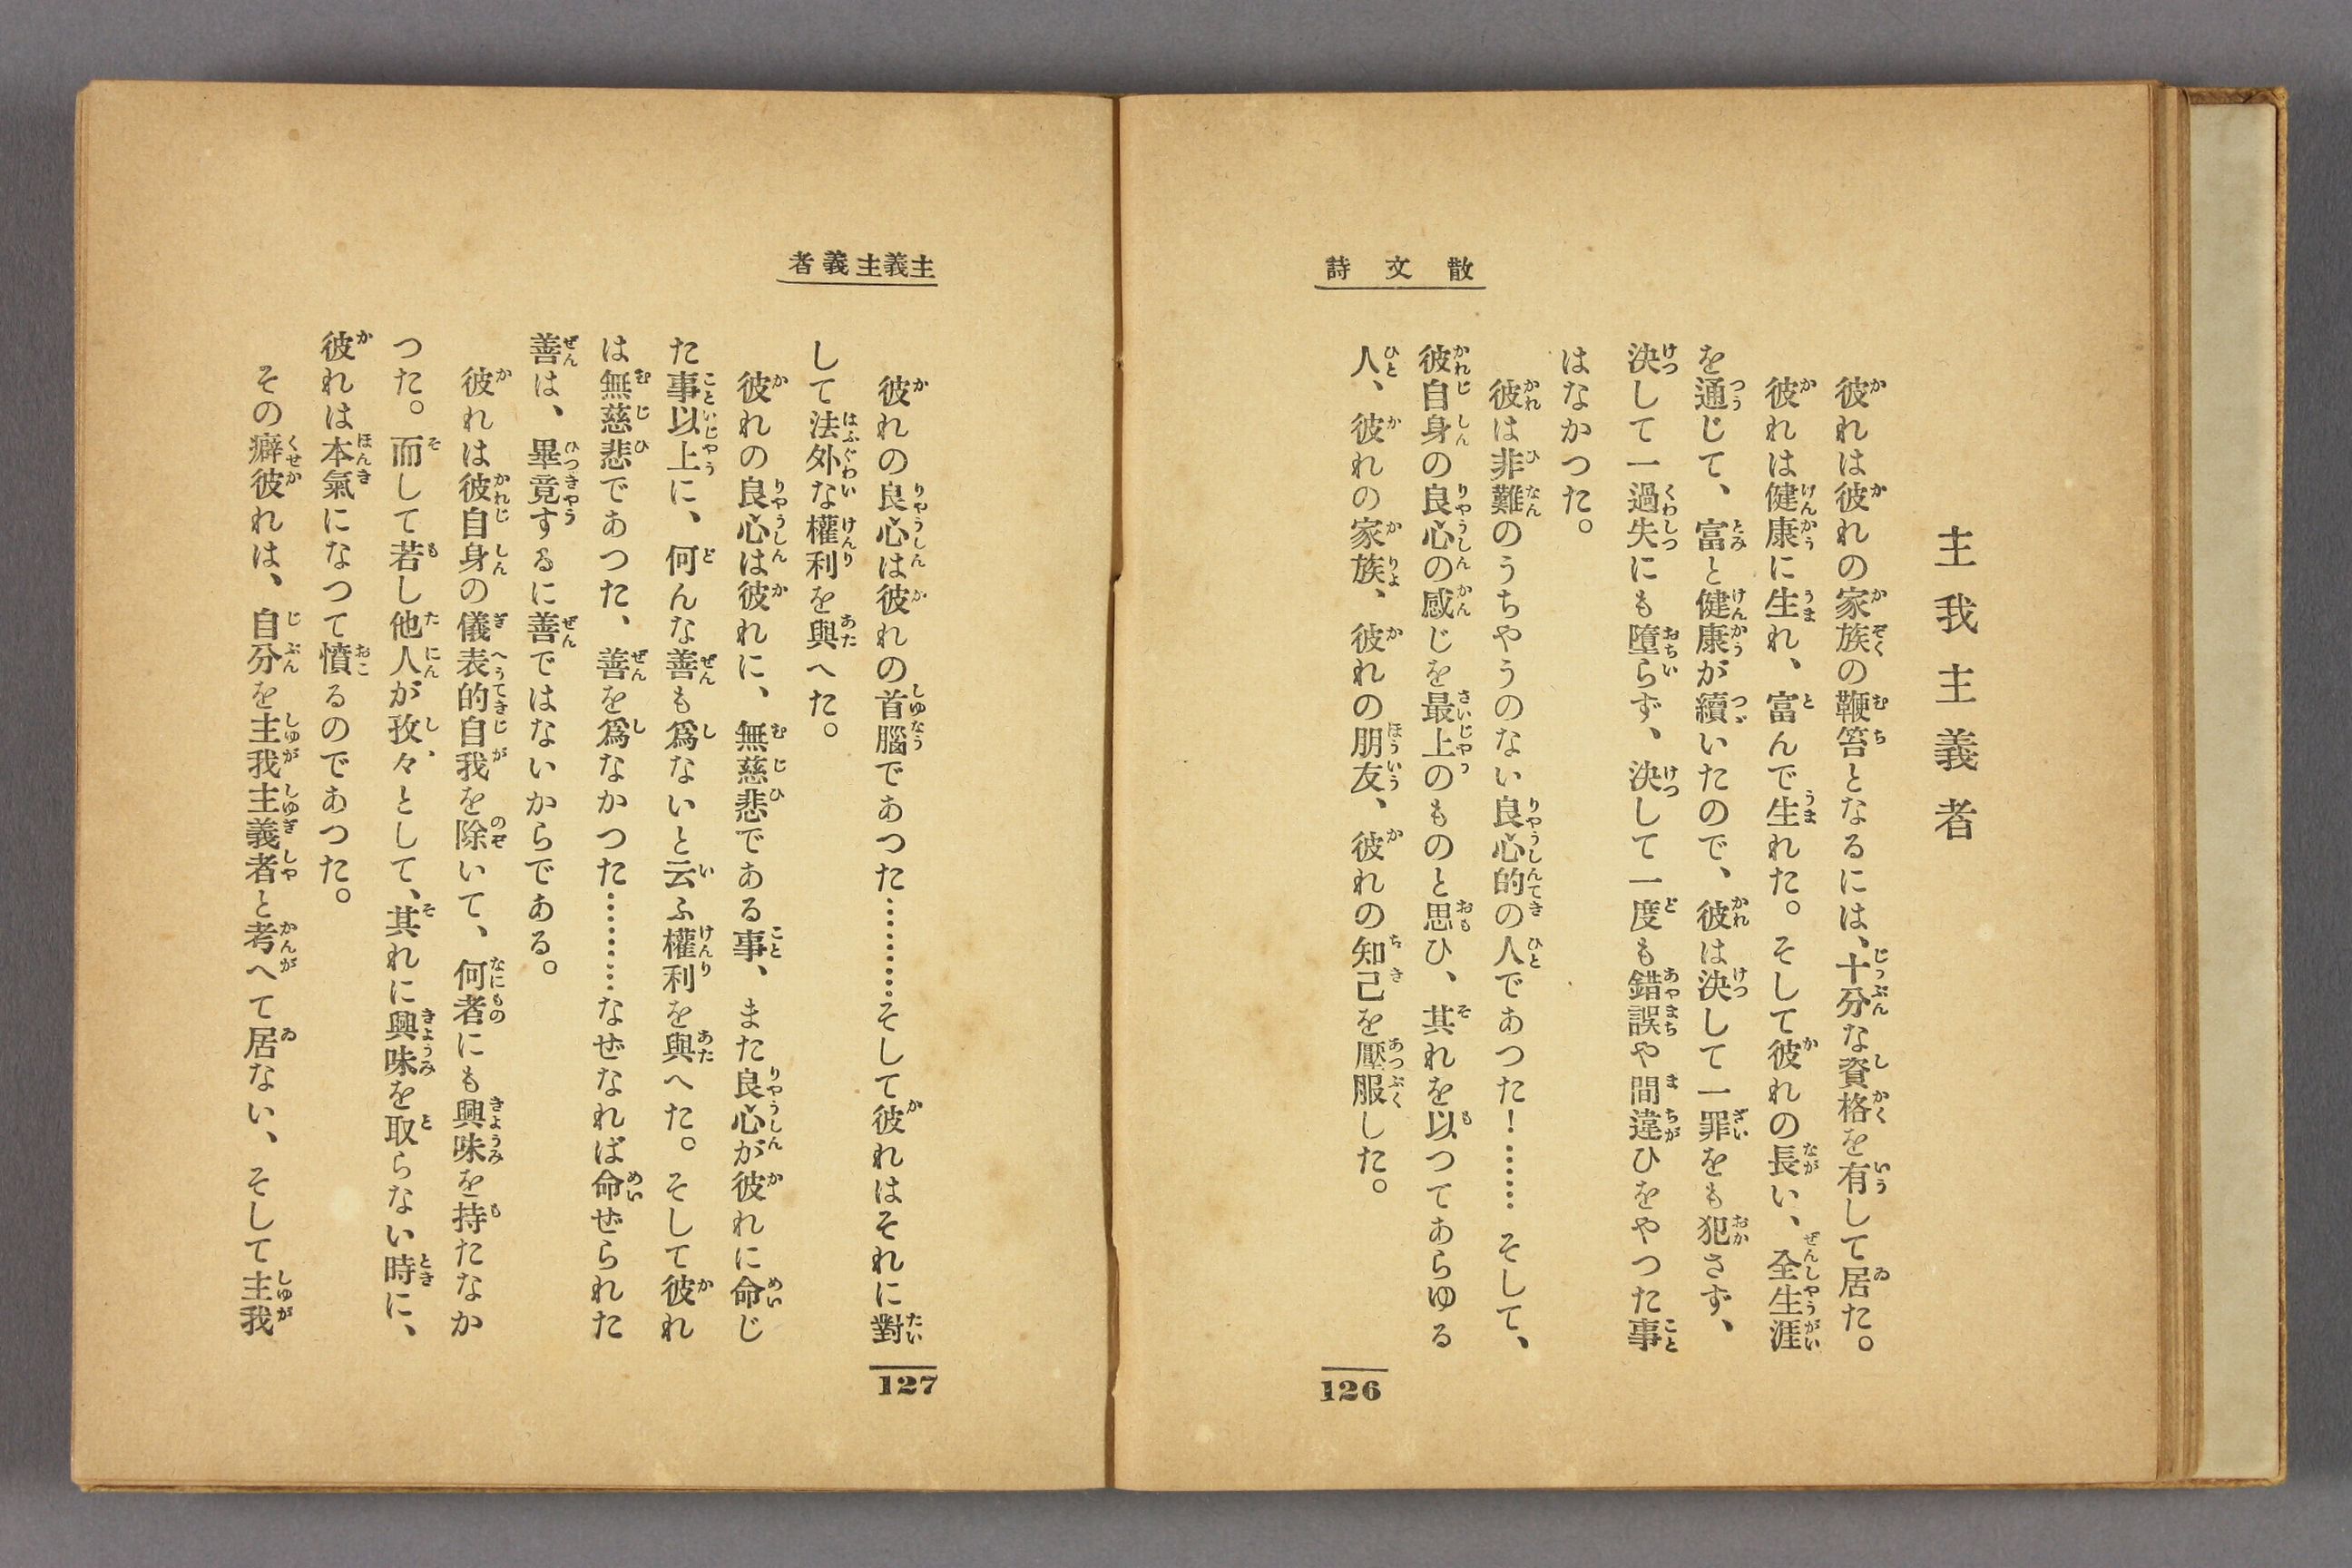 散文詩
主我主義者
彼れは彼れの家族の鞭笞となるには、十分な資格を有して居た。
彼れは健康に生れ、富んで生れた。そして彼れの長い、全生涯
を通じて、富と健康が續いたので、彼は決して一罪をも犯さず、
決して一過失にも墮らず、決して一度も錯誤や間違ひをやつた事
はなかつた。
彼は非難のうちやうのない良心的の人であつた！…… そして、
彼自身の良心の感じを最上のものと思ひ、其れを以つてあらゆる
人、彼れの家族、彼れの朋友、彼れの知己を壓服した。
126
主義主義者
彼れの良心は彼れの首腦であつた…………そして彼れはそれに對
して法外な權利を與へた。
彼れの良心は彼れに、無慈悲である事、また良心が彼れに命じ
た事以上に、何んな善も爲ないと云ふ權利を與へた。そして彼れ
は無慈悲であつた、善を爲なかつた…………なぜなれば命ぜられた
善は、畢竟するに善ではないからである。
彼れは彼自身の儀表的自我を除いて、何者にも興味を持たなか
つた。而して若し他人が孜々として、其れに興味を取らない時に、
彼れは本氣になつて憤るのであつた。
その癖彼れは、自分を主我主義者と考へて居ない、そして主我
127